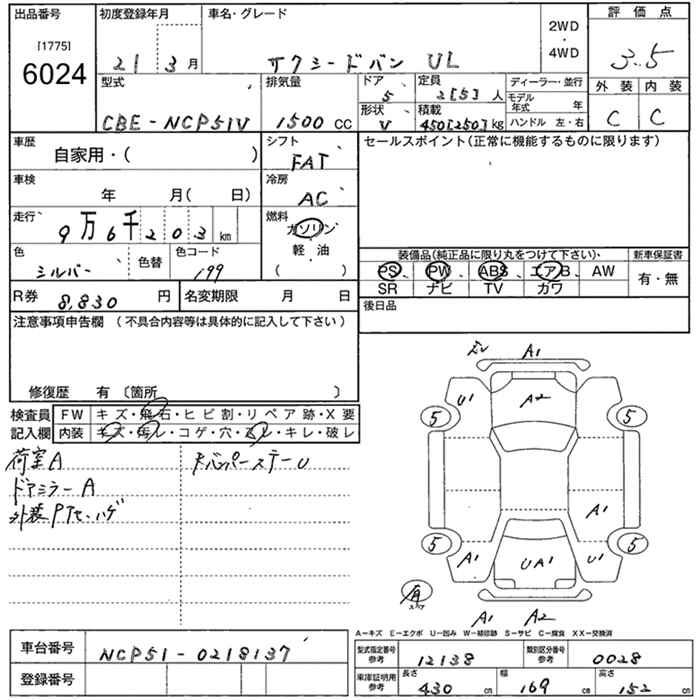 出品番号 初度登録年月 車名・グレード 2WD・4WD 評価点
[1775]
6024 21 3月 サクシードバン UL 3.5
型式 排気量 ドア 5 定員 2[5]人 ディーラー・並行 外装 内装
CBE-NCP51V 1500CC 形状 V 積載 450[250]kg モデル年式 年 ハンドル 左・右 C C
車歴 自家用・( ) シフト FAT セールスポイント(正常に機能するものに限ります)
車検 年 月( 日) 冷房 AC
走行 9万6千203km 燃料 ガソリン
軽・油
( )
色 シルバー 色替 色コード 199 装備品(純正品に限り丸をつけて下さい) 新車保証書
PS、PW、ABS、エアB、AW 有・無
SR ナビ TV カワ
R券 8,830円 名変期限 月 日 後日品
注意事項申告欄 (不具合内容等は具体的に記入して下さい)
修復歴 有 〔箇所 〕
検査員 FW キズ・飛石・ヒビ割・リペア跡・X要
記入欄 内装 キズ・汚レ・コゲ・穴・スレ・キレ・破レ
荷室A
ドアミラーA
A1
U1 A2
5 5
A1
5 5
A1 UA1 U1
スペア
A1 A2
A-キズ E-エクボ U-凹み W-補修跡 S-サビ C-腐食 XX-交換済
車台番号 NCP51-0218137 型式指定番号 参考 12138 類別区分番号 参考 0028
登録番号 車庫証明用 参考 長さ 430cm 幅 169cm 高さ 152cm